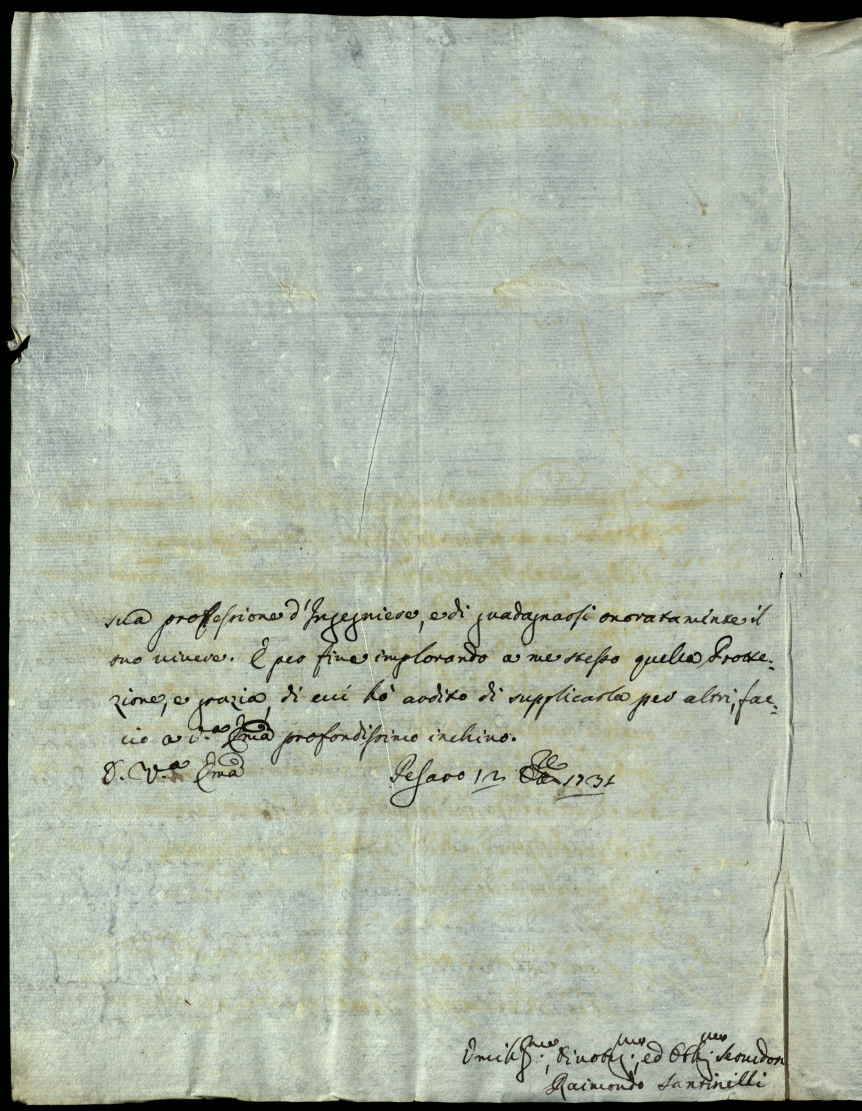 sua professione d'Ingegniere, e di guadagnarsi onoratamente il
suo vivere. E per fine implorando a me stesso quella Prote-
zione, e grazia, di cui hò ardito di supplicarla per altri, fac-
cio a V.ª Em̃a profondissimo inchino.
D. V.ª Em̃a Pesaro 12 1731
Umil.mo, Divot.mo, ed Obb.mo Servidor
Raimondo Santinelli